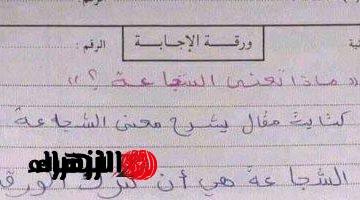 الرقم :
ورقة الإجابة
« ماذا تعني الشجاعة ؟ »
كتابة مقال يشرح معنى الشجاعة
الشجاعة هي أن تترك الورقة
الزهراء